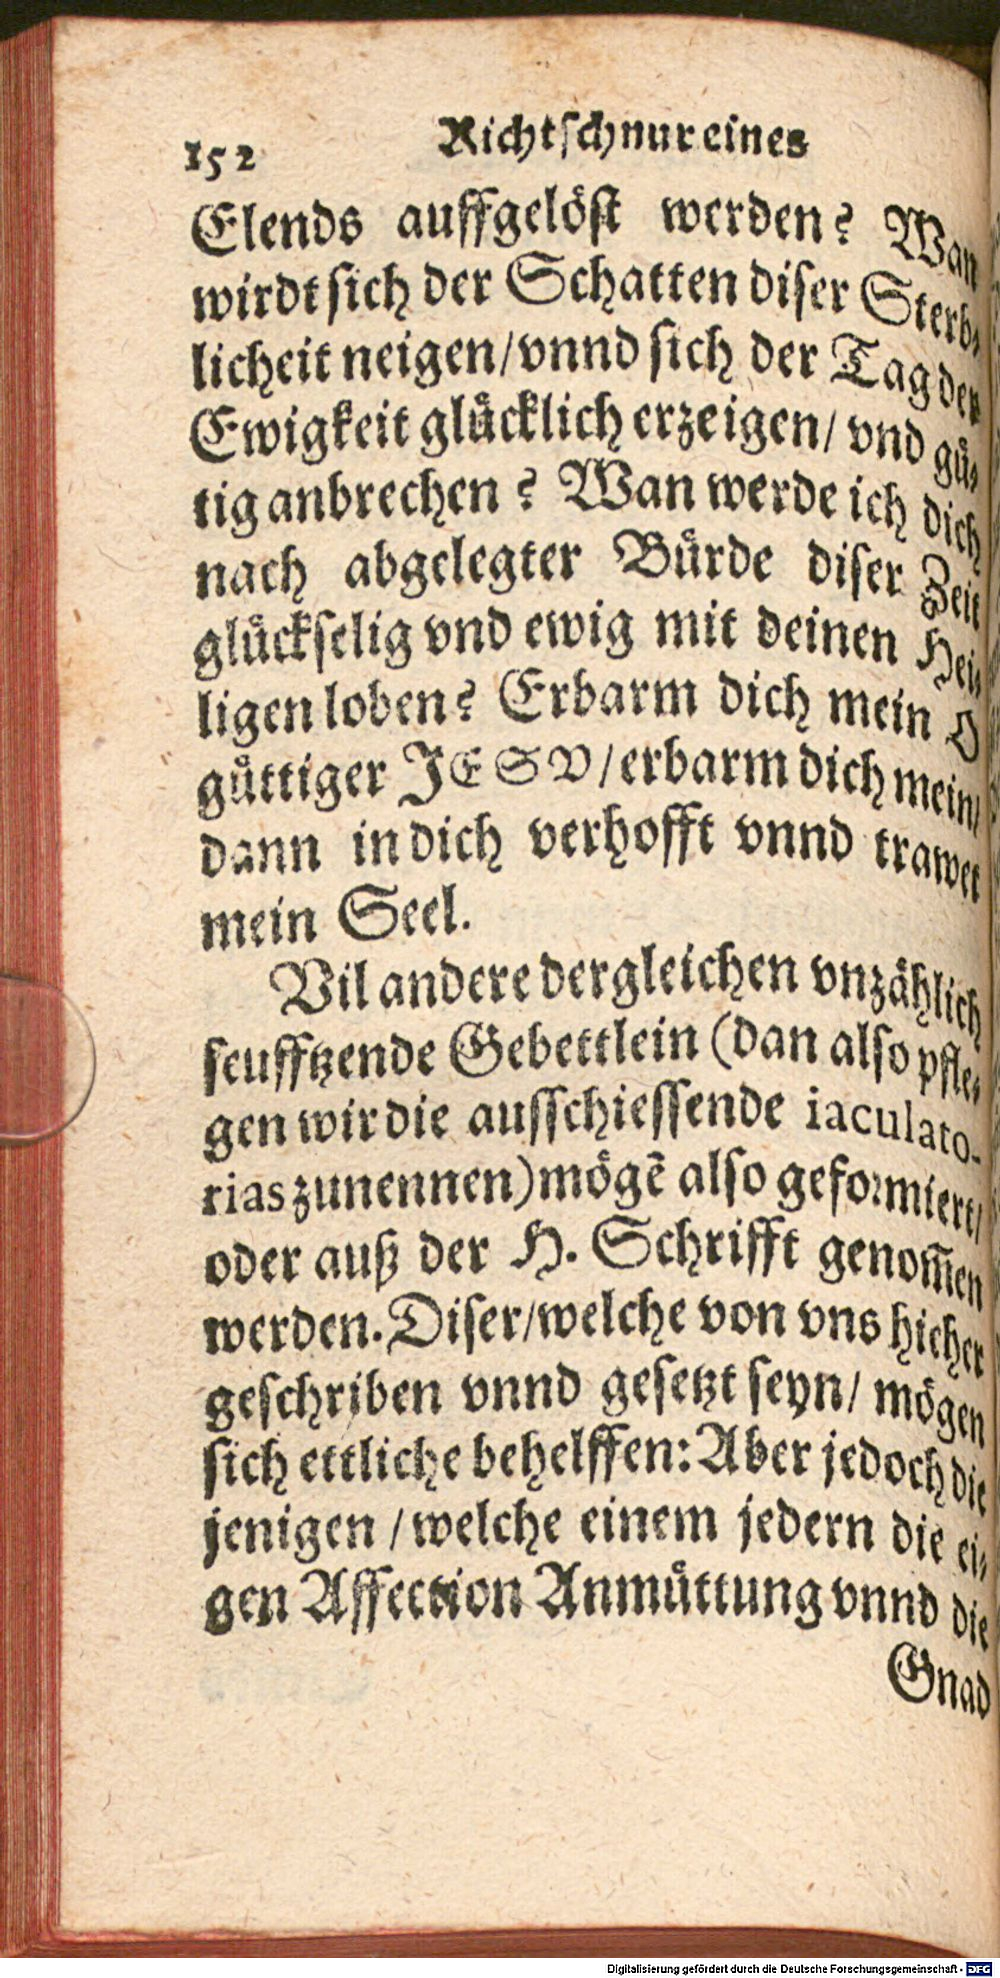 152 Richtschnur eines
Elends auffgelöst werden? Wan
wirdt sich der Schatten diser Sterb-
licheit neigen/vnnd sich der Tag der
Ewigkeit glücklich erzeigen/ vnd gü-
tig anbrechen? Wan werde ich dich
nach abgelegter Bürde diser Zeit
glückselig vnd ewig mit deinen Hei-
ligen loben? Erbarm dich mein O
güttiger JESV/erbarm dich mein/
dann in dich verhofft vnnd trawet
mein Seel.
Vil andere dergleichen vnzählich
seufftzende Gebettlein (dan also pfle-
gen wir die ausschiessende iaculato-
rias zunennen) mögẽ also geformiert/
oder auß der H. Schrifft genom̃en
werden. Diser/welche von vns hieher
geschriben vnnd gesetzt seyn/ mögen
sich ettliche behelffen: Aber jedoch die
jenigen/welche einem jedern die ei-
gen Affection Anmüttung vnnd die
Gnad
Digitalisierung gefördert durch die Deutsche Forschungsgemeinschaft - DFG